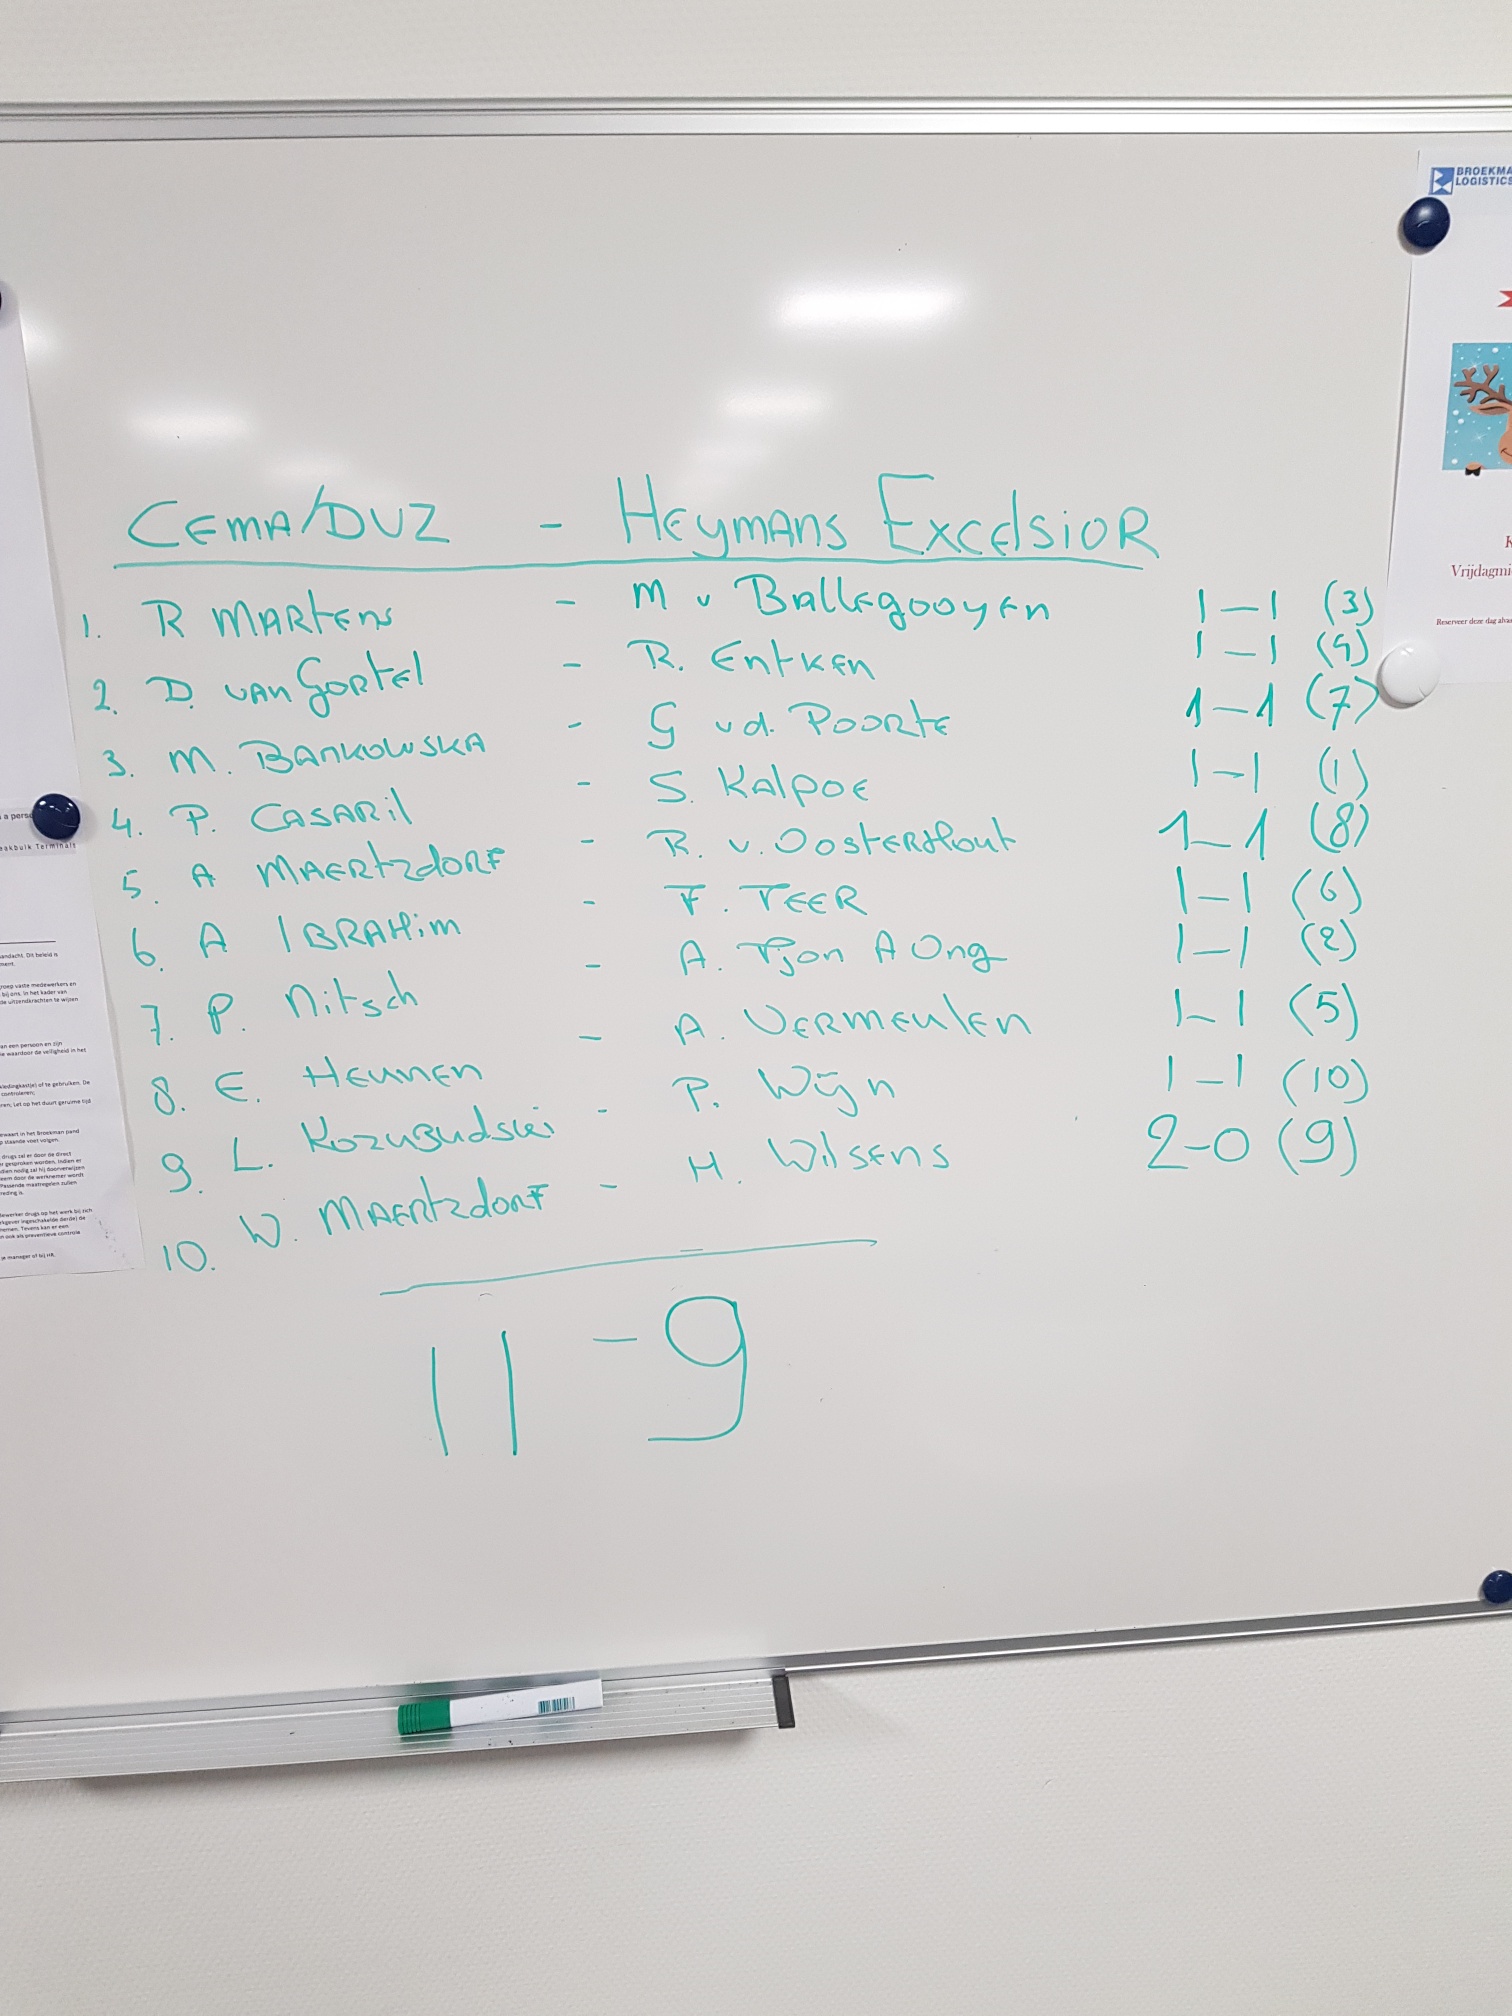 BROEKMA
LOGISTICS
CEMA/DVZ - HEYMANS EXCELSIOR
1. R MARTENS - M v BALLEGOOYEN 1-1 (3)
2. D. VAN GORTEL - R. ENTKEN 1-1 (4)
3. M. BANKOWSKA - G v.d. POORTE 1-1 (7)
4. P. CASARIL - S. KALPOE 1-1 (1)
5. A MAERTZDORF - R. v. OOSTERHOUT 1-1 (8)
6. A IBRAHIM - F. TEER 1-1 (6)
7. P. Nitsch - A. Tjon A Ong 1-1 (2)
8. E. HEUNEN - A. VERMEULEN 1-1 (5)
9. L. KOZUBUDSKI - P. Wijn 1-1 (10)
10. W. MAERTZDORF - H. WILSENS 2-0 (9)
11 - 9
K
Vrijdagmi
Reserveer deze dag alvas
a pers
eakbulk Terminals